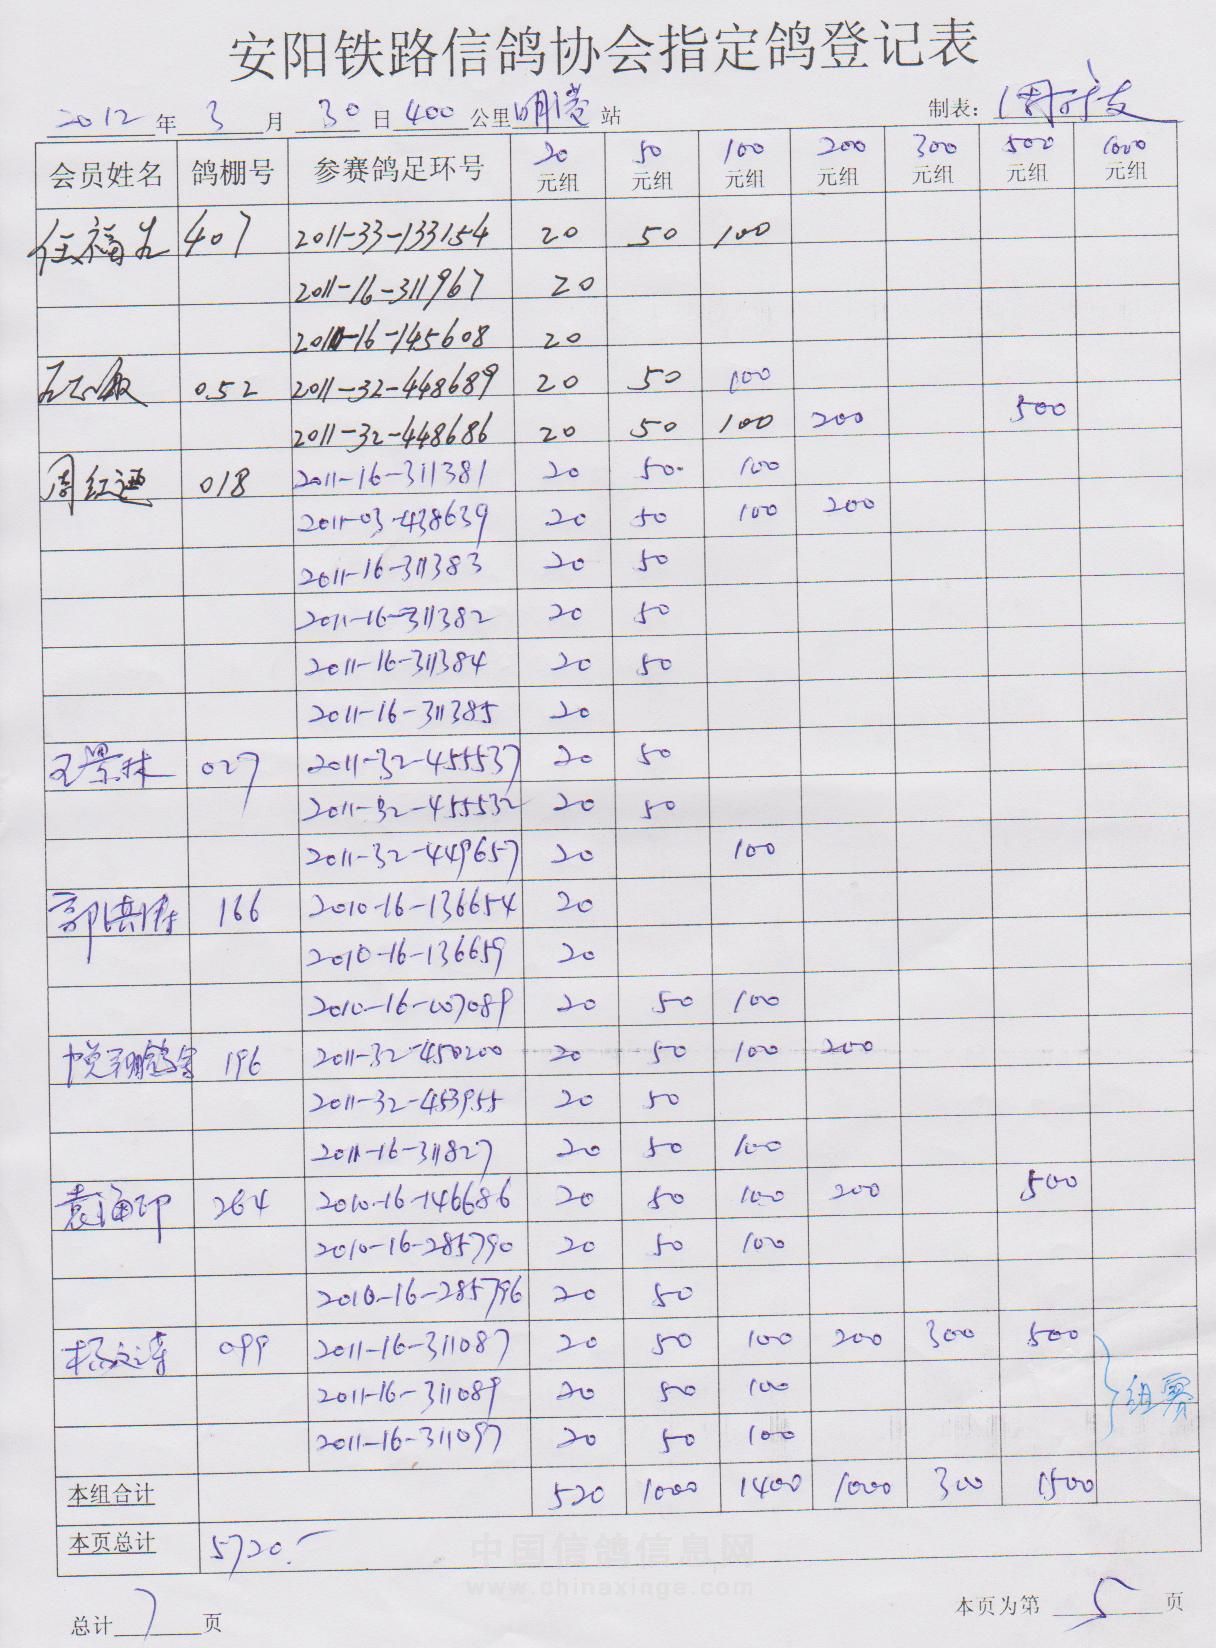 安阳铁路信鸽协会指定鸽登记表
2012年 3月 30日 400公里明港站 制表：
会员姓名 鸽棚号 参赛鸽足环号 20元组 50元组 100元组 200元组 300元组 500元组 1000元组
任福生 407 2011-33-133154 20 50 100
2011-16-311967 20
2011-16-145608 20
052 2011-32-448689 20 50 100
2011-32-448686 20 50 100 200 500
周红运 018 2011-16-311381 20 50 100
2011-03-438639 20 50 100 200
2011-16-311383 20 50
2011-16-311382 20 50
2011-16-311384 20 50
2011-16-311385 20
王景林 027 2011-32-455537 20 50
2011-32-455532 20 50
2011-32-449657 20 100
166 2010-16-136654 20
2010-16-136659 20
2010-16-007089 20 50 100
悦翔鸽舍 196 2011-32-450200 20 50 100 200
2011-32-453955 20 50
2011-16-311827 20 50 100
袁海印 264 2010-16-146686 20 50 100 200 500
2010-16-285790 20 50 100
2010-16-285796 20 50
杨文涛 099 2011-16-311087 20 50 100 200 300 500
2011-16-311089 20 50 100 组赛
2011-16-311097 20 50 100
本组合计 520 1000 1400 1000 300 1500
本页总计 5720.-
中国信鸽信息网
www.chinaxinge.com
总计 7 页 本页为第 5 页